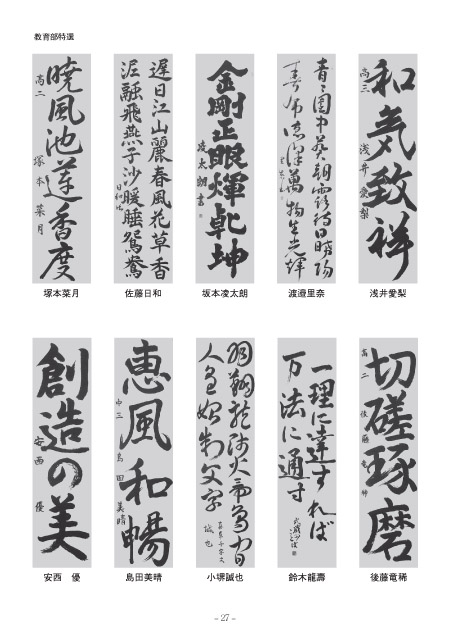 教育部特選
和気致祥
高三 浅井愛梨
浅井愛梨
青々園中葵朝露待日晞陽
春布徳澤萬物生光輝
渡邉里奈
金剛正眼輝乾坤
凌太朗書
坂本凌太朗
遅日江山麗春風花草香
泥融飛燕子沙暖睡鴛鴦
日和
佐藤日和
暁風池蓮香度
高二 塚本菜月
塚本菜月
切磋琢磨
高二 後藤竜稀
後藤竜稀
一理に達すれば
万法に通ず
鈴木龍壽
羽翔龍師火帝鳥官
人皇始制文字
誠也
小堺誠也
恵風和暢
中三 島田美晴
島田美晴
創造の美
安西 優
安西 優
- 27 -